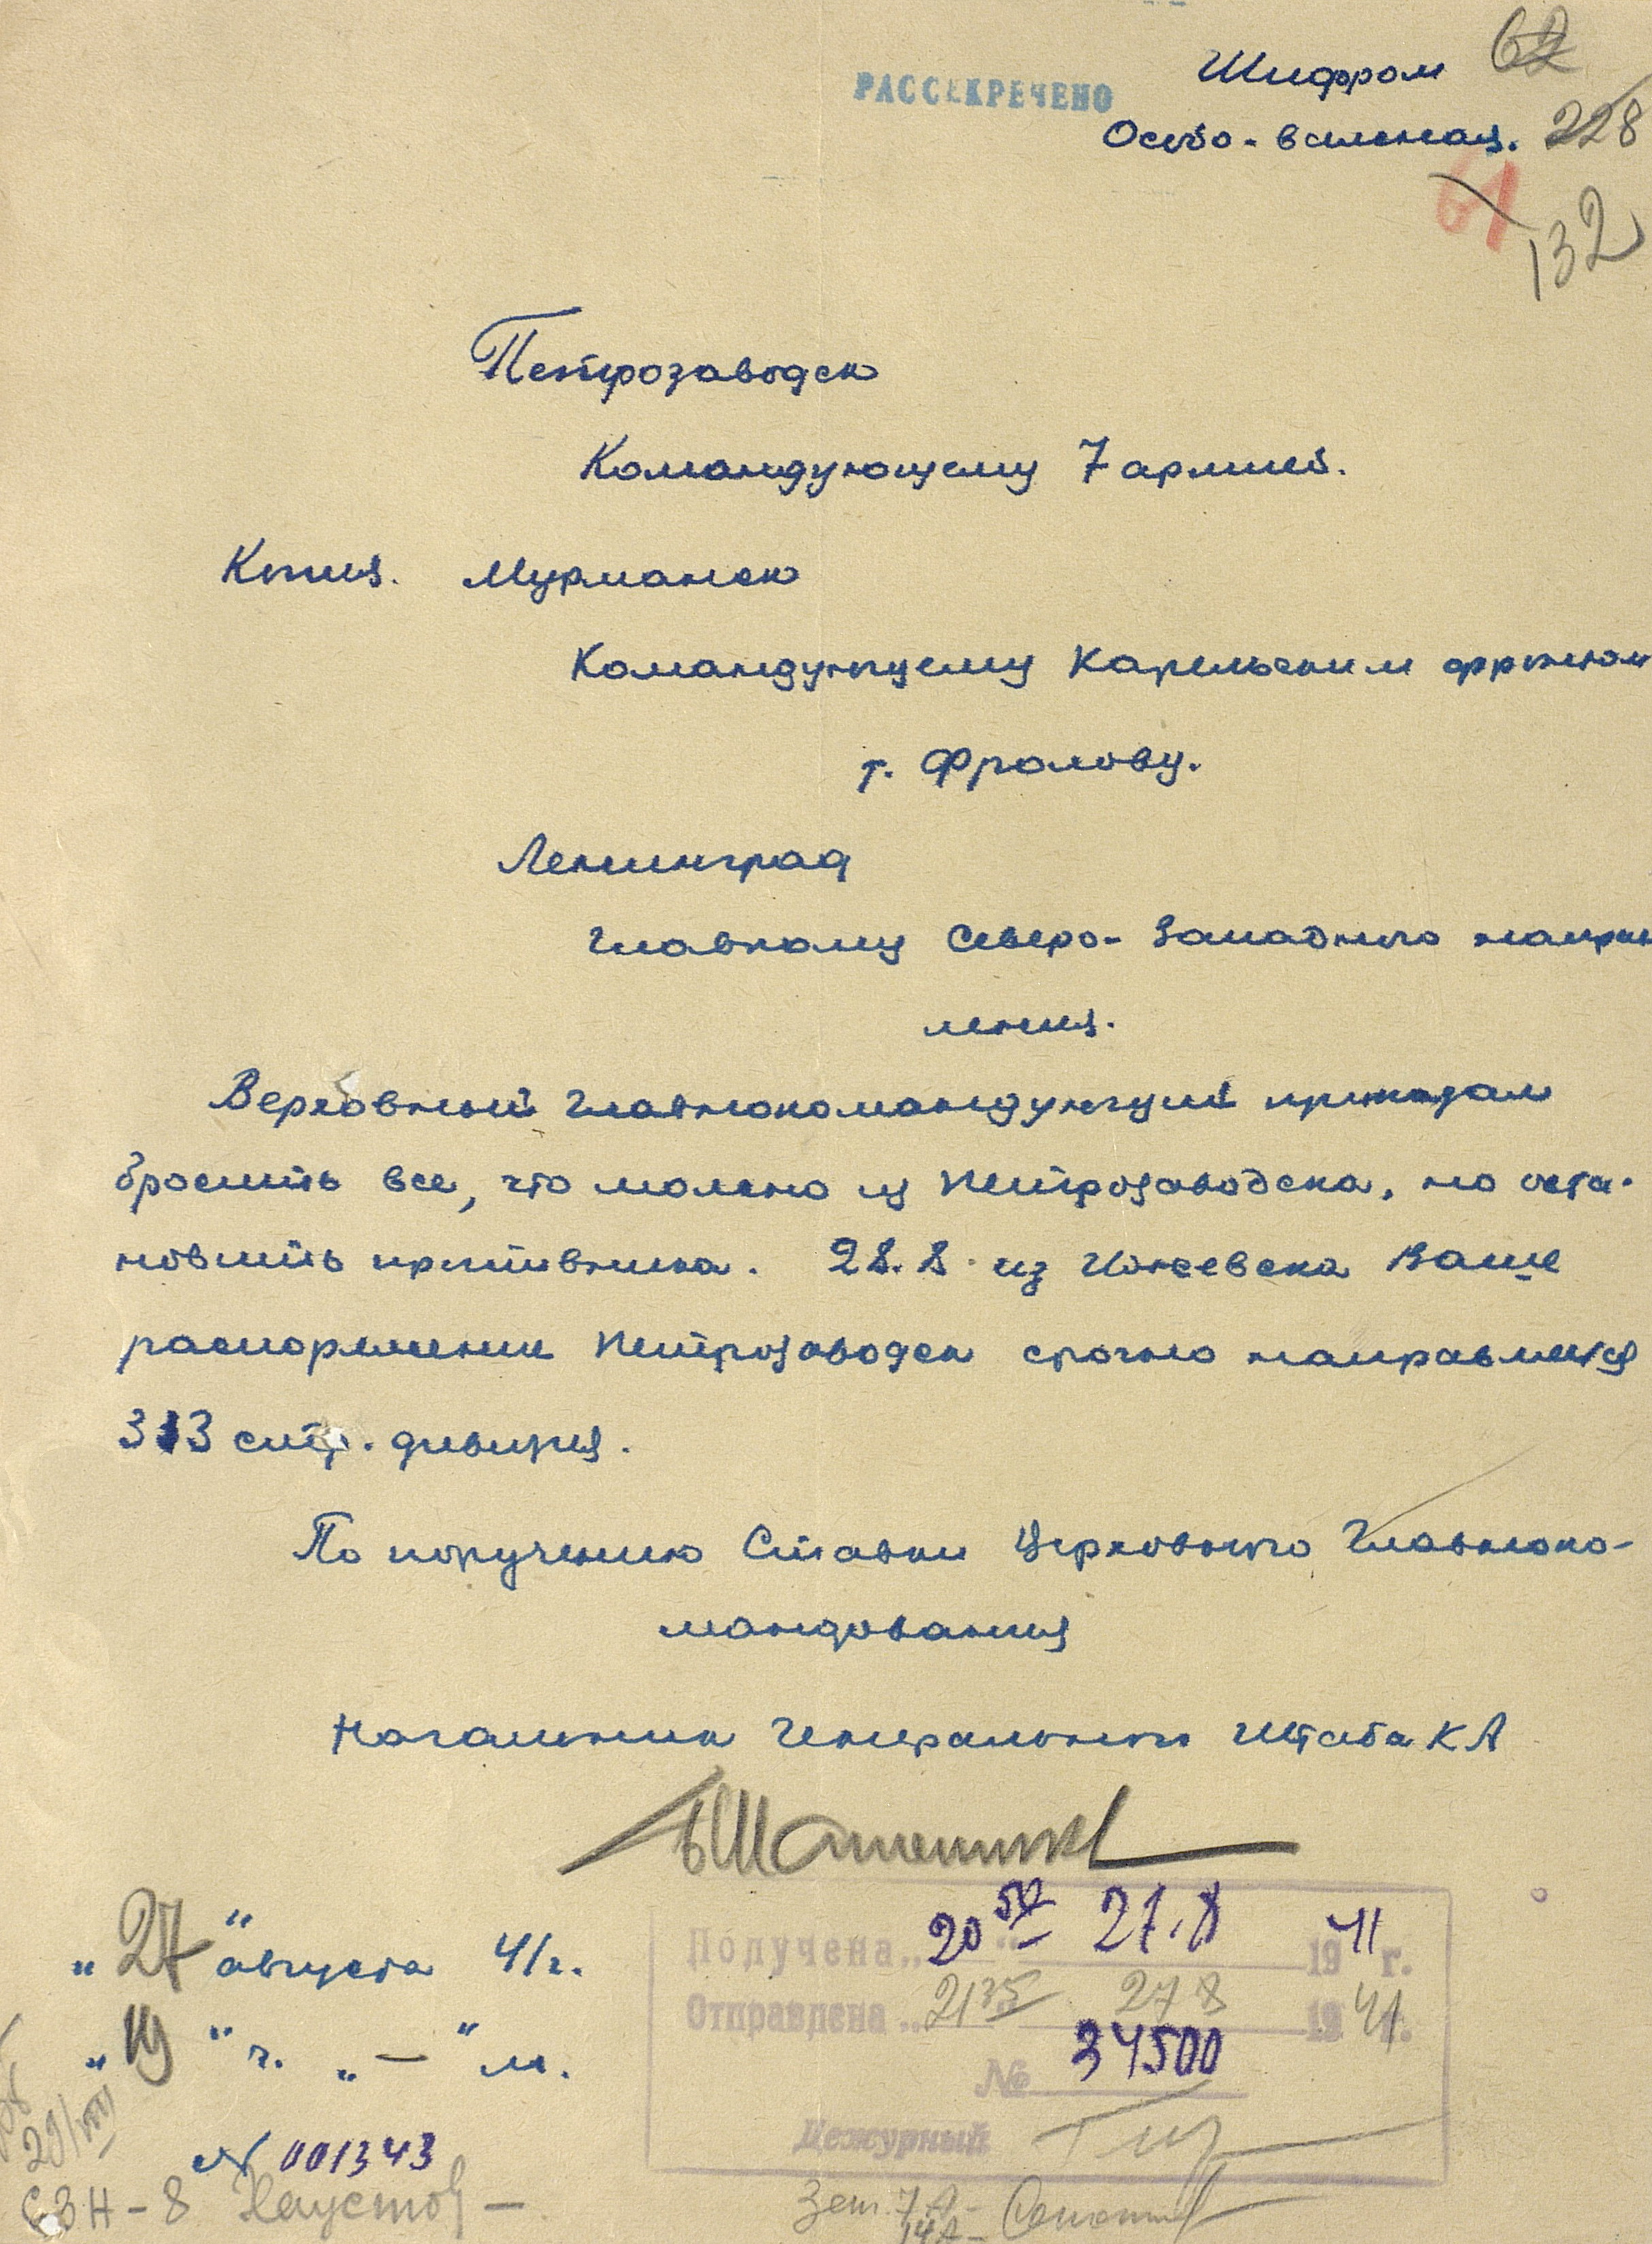 Шифром 62
РАССЕКРЕЧЕНО
Особо-важная. 228
61
132
Петрозаводск
Командующему 7 армией.
Копия. Мурманск
Командующему Карельским фронтом
т. Фролову.
Ленинград
Главкому Северо-Западного направ
ления.
Верховный Главнокомандующий приказал
бросить все, что можно из Петрозаводска, но оста-
новить противника. 28.8 из Ижевска Ваше
распоряжение Петрозаводск срочно направляется
313 стр. дивизия.
По поручению Ставки Верховного Главноко-
мандования
Начальник Генерального Штаба КА
Б Шапошников
"27" августа 41г.
"19" ч. "—" м.
№ 001343
Получена "20 50" 27.8 1941 г.
Отправлена "21 35" 27 8 1941 г.
№ 34500
Дежурный
29/VIII
СЗН-8 Хаустов —
7А —
14А —